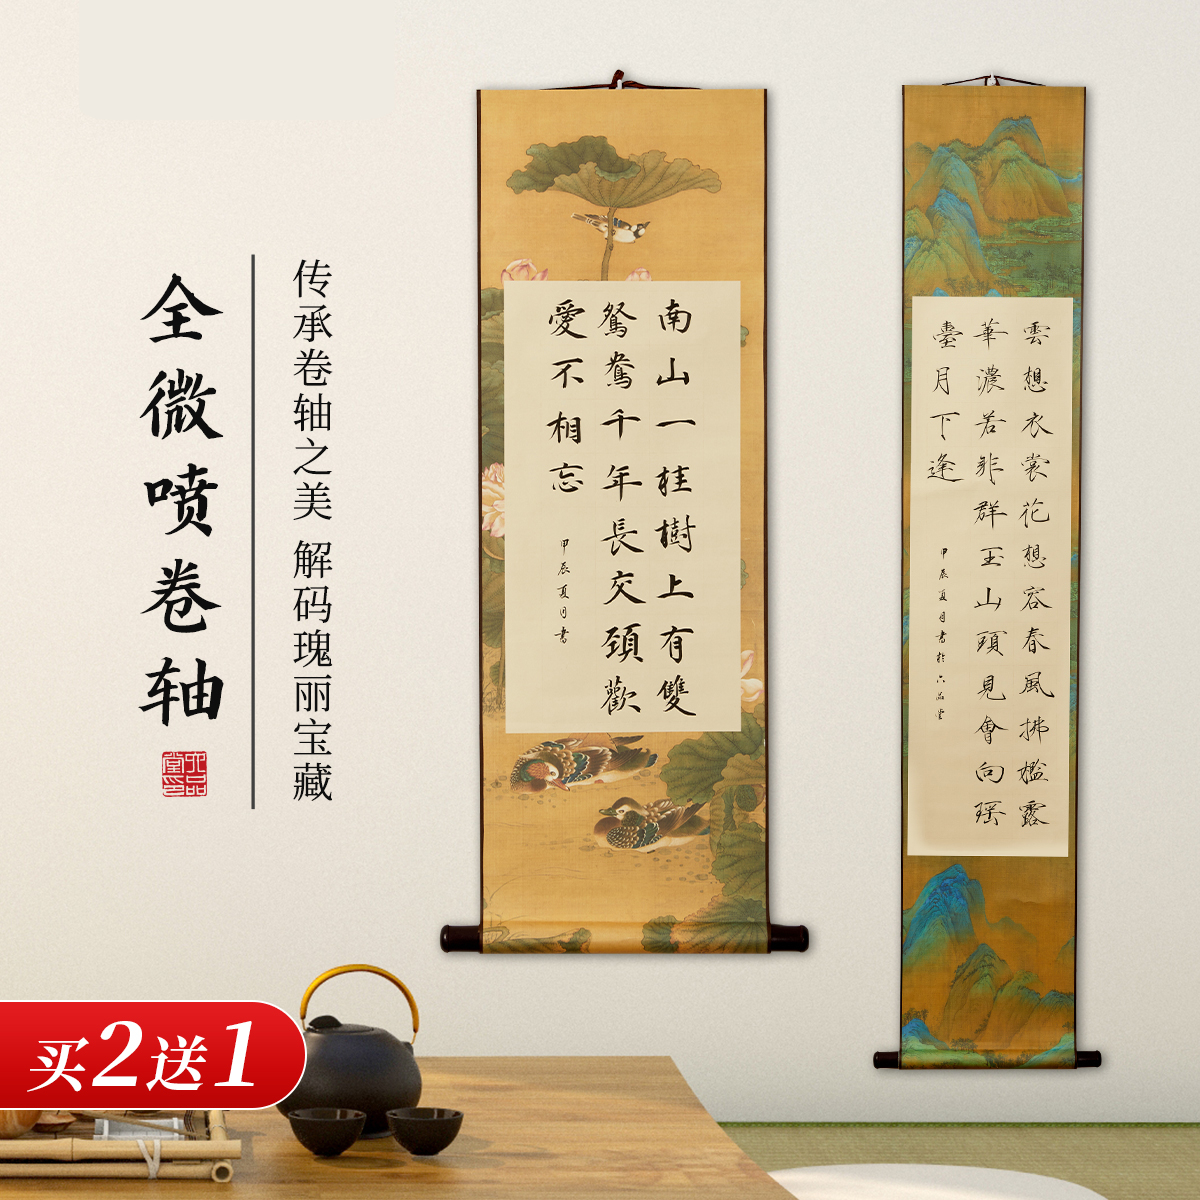 全微喷卷轴
六品堂印
传承卷轴之美 解码瑰丽宝藏
南山一桂樹上有雙
鴛鴦千年長交頸歡
愛不相忘
甲辰夏月書
雲想衣裳花想容春風拂檻露
華濃若非群玉山頭見會向瑶
臺月下逢
甲辰夏月書於六品堂
买2送1